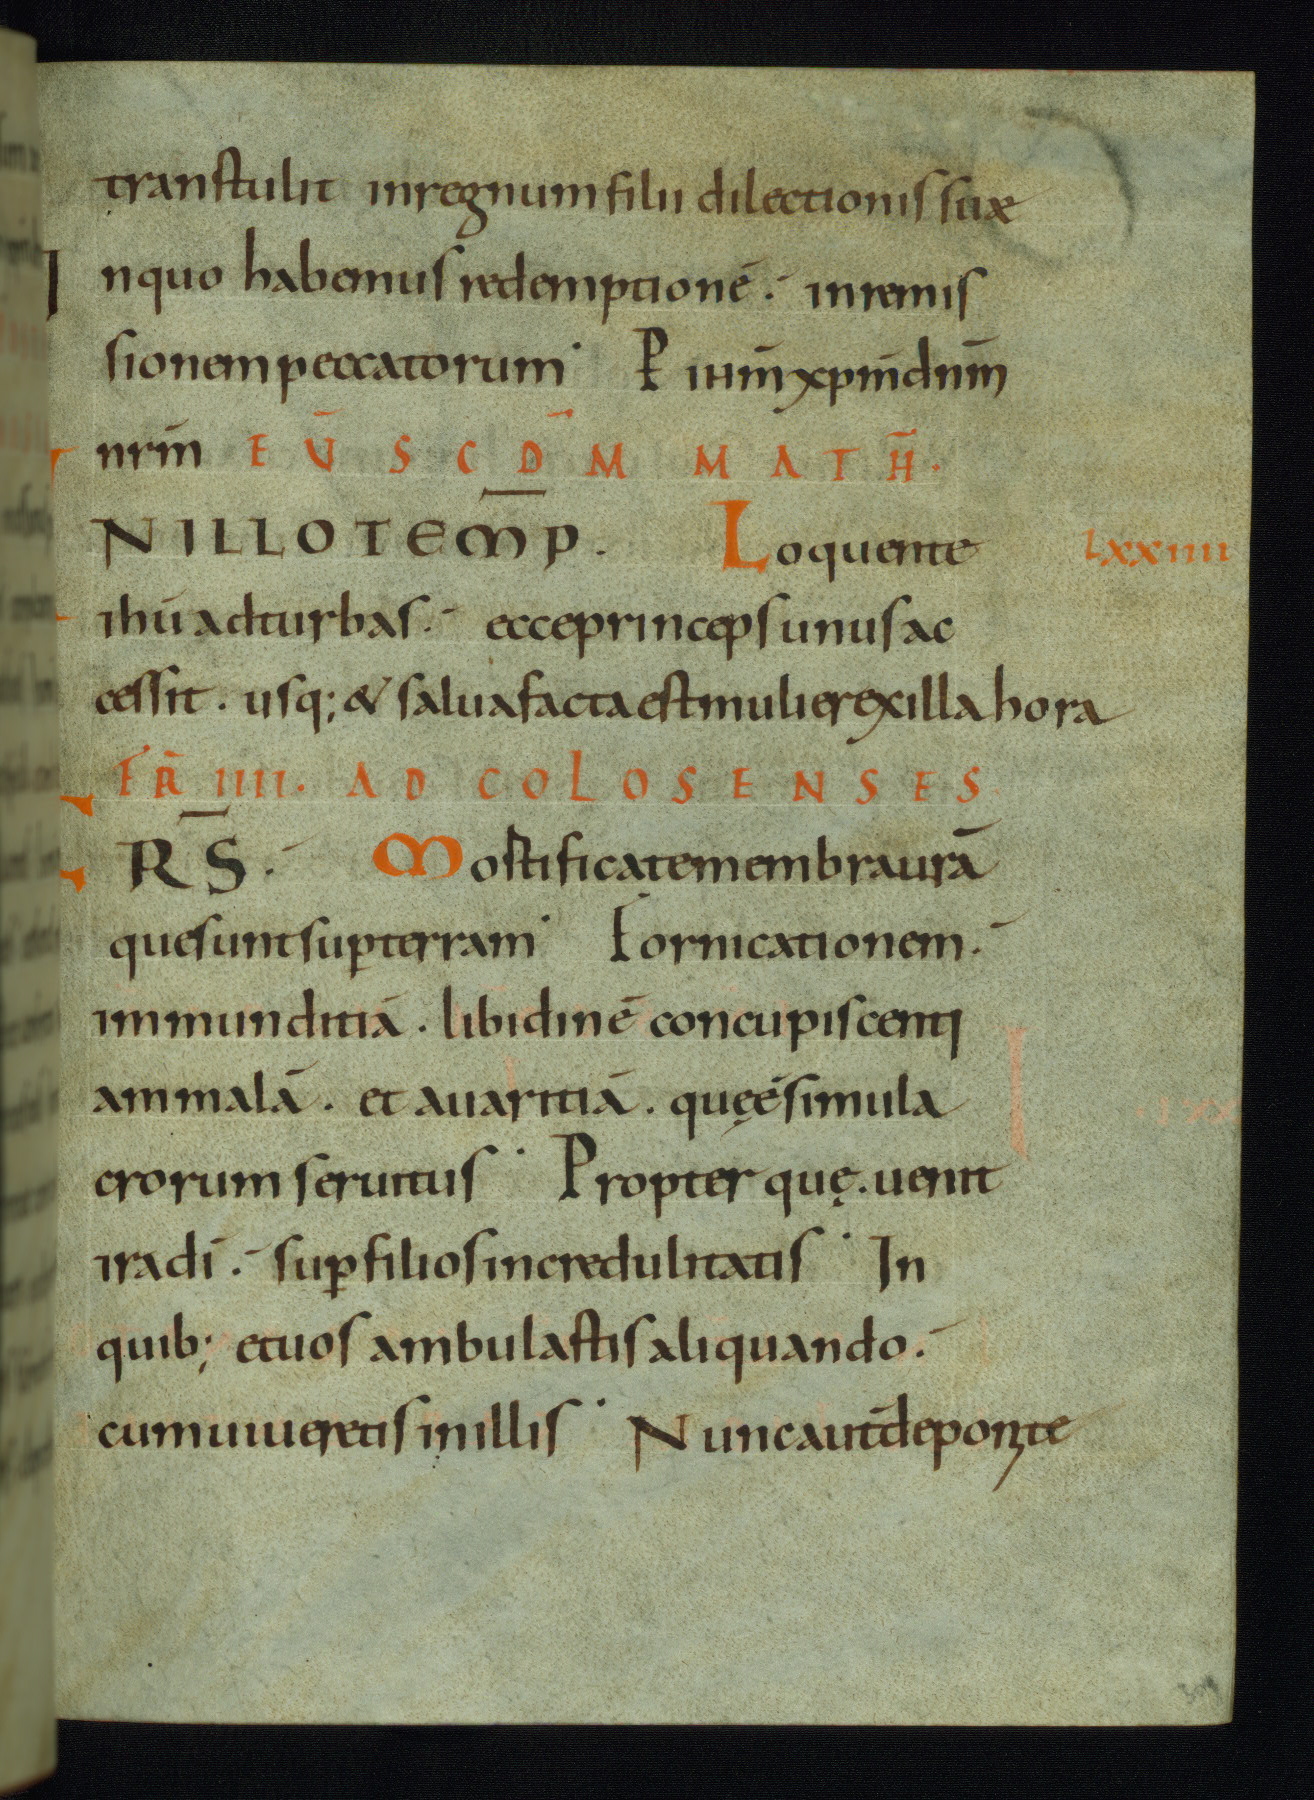 transtulit in regnum filii dilectionis suae
In quo habemus redemptionē. in remis
sionem peccatorum P ihm̄ xpm̄ dnm̄
nrm̄ EŪ SCD̄M MATH̄.
IN ILLO TEM̄P. Loquente LXXIIII
ihū ad turbas. ecce princeps unus ac
cessit. usq; & salua facta est mulier ex illa hora
FR̄ IIII. AD COLOSENSES
FRS̄. Mortificate membra urā
que sunt sup̄ terram Fornicationem.
immunditiā. libidinē concupiscenti
am malā. et auaritiā. quę ē simula
crorum seruitus Propter quę. uenit
ira dī. sup̄ filios incredulitatis In
quib; et uos ambulastis aliquando.
cum uiueretis in illis Nunc aut̄ deponite